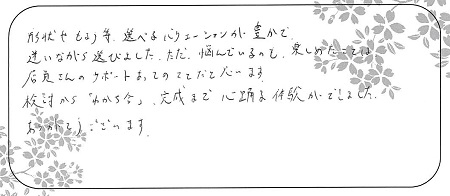 形状やもよう等、選べるバリエーションが豊かで、
迷いながら選びました。ただ、悩んでいるのも、楽しめたことは
店員さんのサポートあってのことだと思います。
検討から「わかち合」、完成まで心踊る体験ができました。
ありがとうございます。